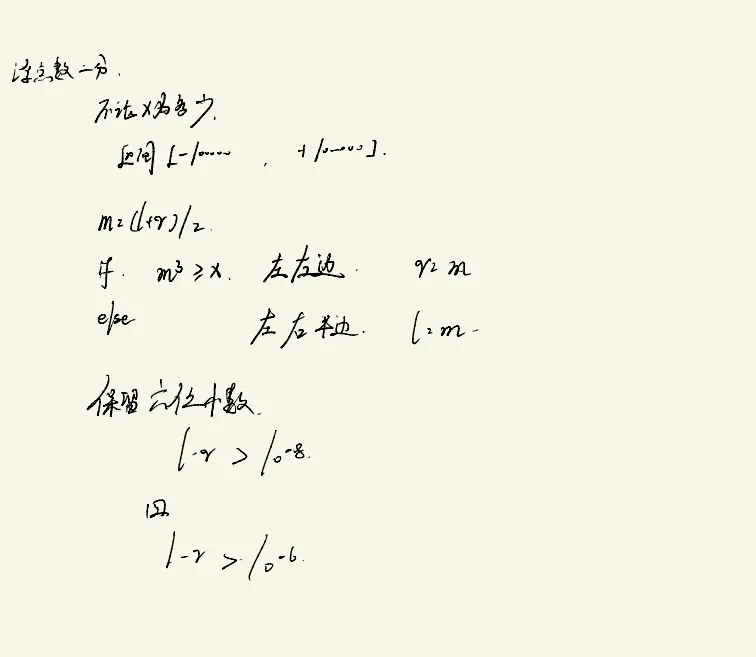 浮点数二分.
不论x为多少,
区间 [-10000 , +10000].
m=(l+r)/2.
if. m³ ≥ x. 在左边. r=m
else 在右半边. l=m
保留六位小数.
l-r > 10^-8.
l-r > 10^-6.